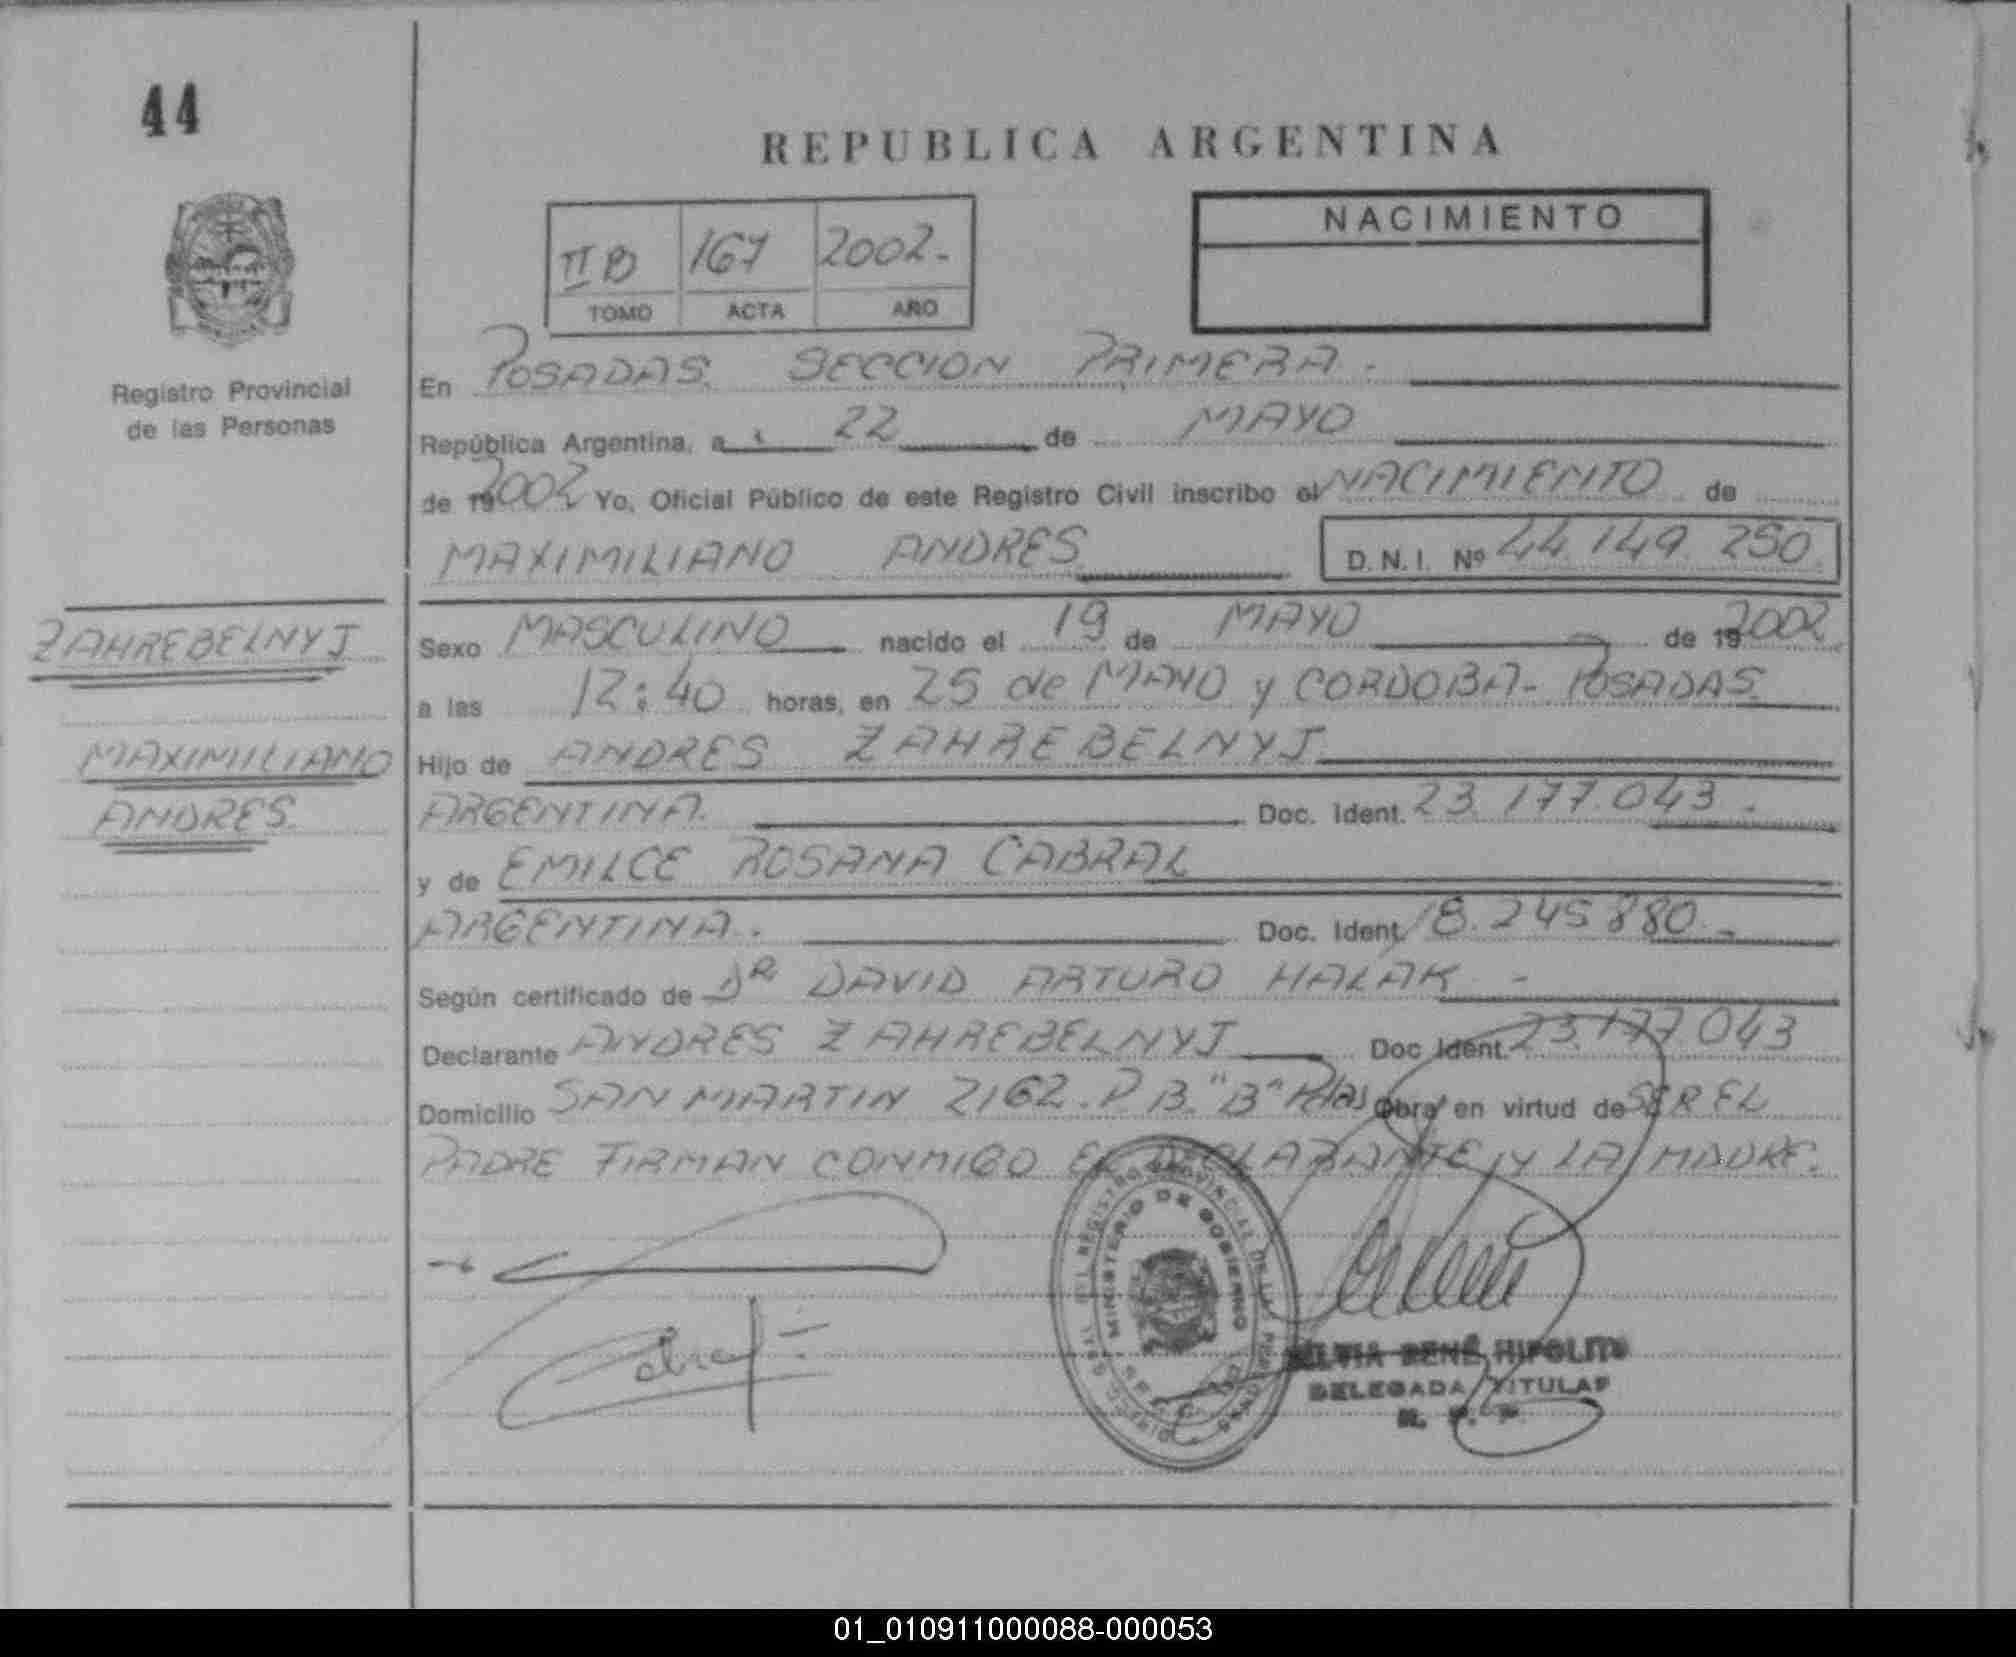 44
REPUBLICA ARGENTINA
Registro Provincial
de las Personas
II B 167 2002.-
TOMO ACTA AÑO
NACIMIENTO
En POSADAS SECCION PRIMERA.-
República Argentina, a 22 de MAYO
de 192002 Yo, Oficial Público de este Registro Civil inscribo el NACIMIENTO de
MAXIMILIANO ANDRES D.N.I. Nº 44.149.250.
ZAHREBELNYJ
MAXIMILIANO
ANDRES.
Sexo MASCULINO nacido el 19 de MAYO de 192002
a las 12:40 horas, en 25 de MAYO y CORDOBA- POSADAS.
Hijo de ANDRES ZAHREBELNYJ
ARGENTINA. Doc. Ident. 23.177.043.
y de EMILCE ROSANA CABRAL
ARGENTINA. Doc. Ident. 18.245.880.-
Según certificado de DR DAVID ARTURO HALAK -
Declarante ANDRES ZAHREBELNYJ Doc Ident. 23.177.043
Domicilio SAN MARTIN 2162. P.B. "B" Pdas Obra en virtud de SER EL
PADRE FIRMAN CONMIGO EL DECLARANTE Y LA MADRE.
MINISTERIO DE GOBIERNO
RENÉ HIPOLITO
DELEGADA TITULAR
01_010911000088-000053